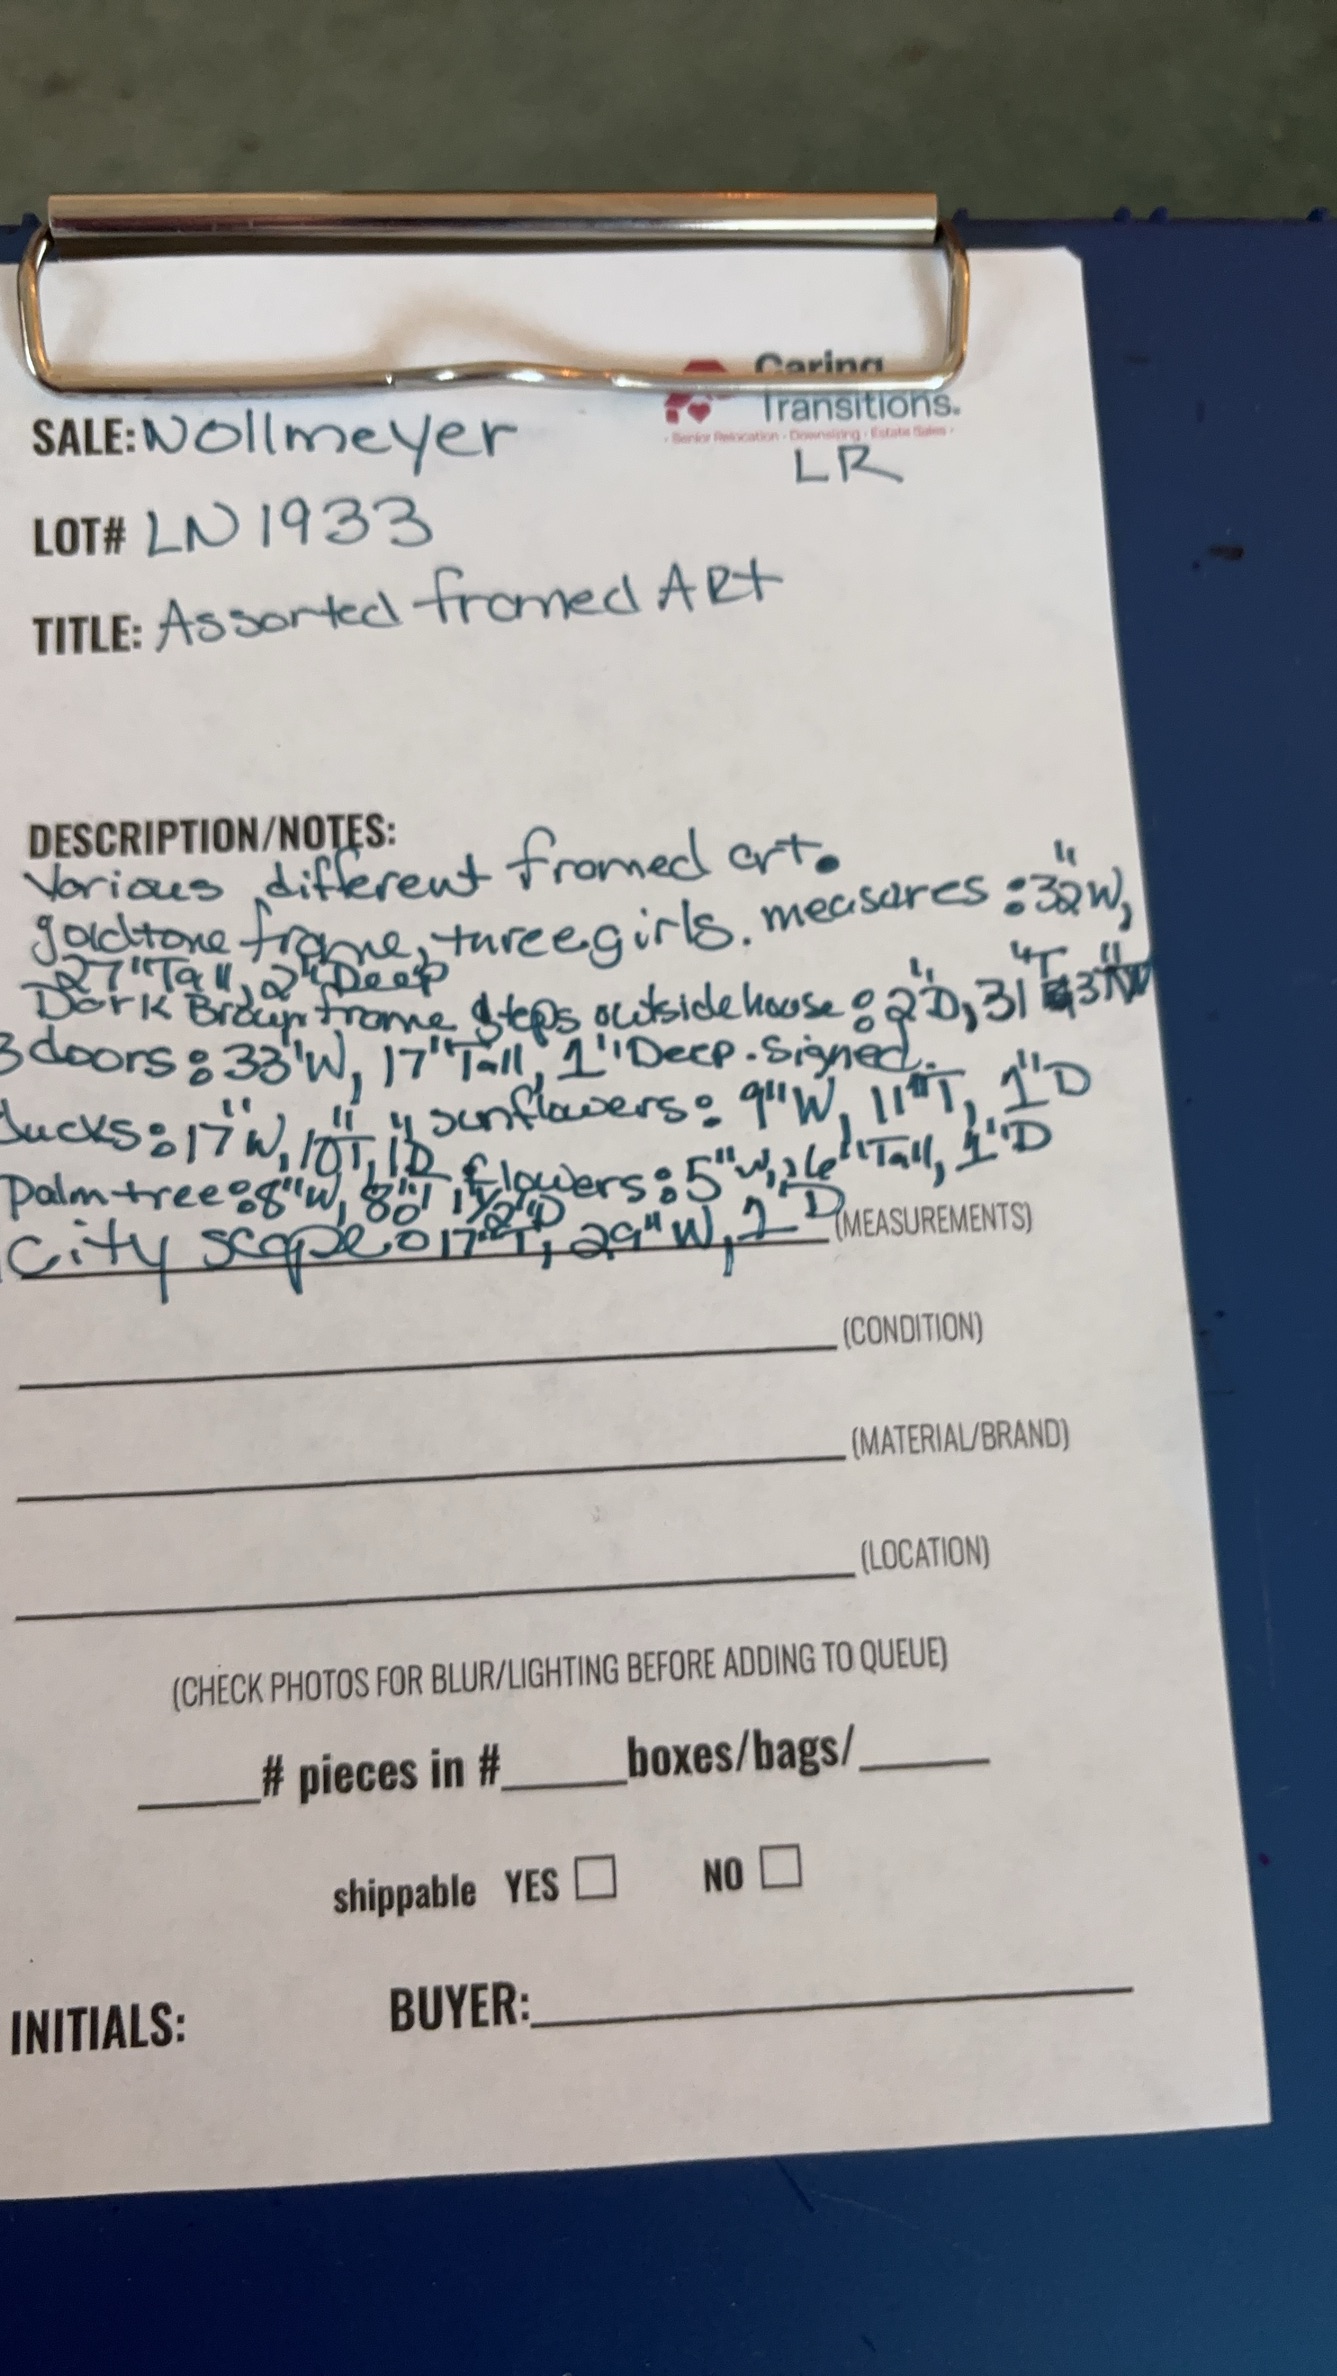 Caring
Transitions.
· Senior Relocation · Downsizing · Estate Sales ·
LR
SALE: Nollmeyer
LOT# LN 1933
TITLE: Assorted framed ARt
DESCRIPTION/NOTES:
Various different framed art.
goldtone frame, three girls. measures: 32"W,
27"Tall, 2" Deep
Dark Brown frame steps outside house: 2"D, 31"T
3 doors: 33"W, 17"Tall, 1" Deep. Signed.
ducks: 17"W, 10"T, 1"D sunflowers: 9"W, 11"T, 1"D
Palm tree: 8"W, 8"T, 1/2"D flowers: 5"W, Tall, 1"D
City scape: 17"T, 29"W, 1"D (MEASUREMENTS)
(CONDITION)
(MATERIAL/BRAND)
(LOCATION)
(CHECK PHOTOS FOR BLUR/LIGHTING BEFORE ADDING TO QUEUE)
# pieces in # boxes/bags/
shippable YES NO
INITIALS: BUYER: